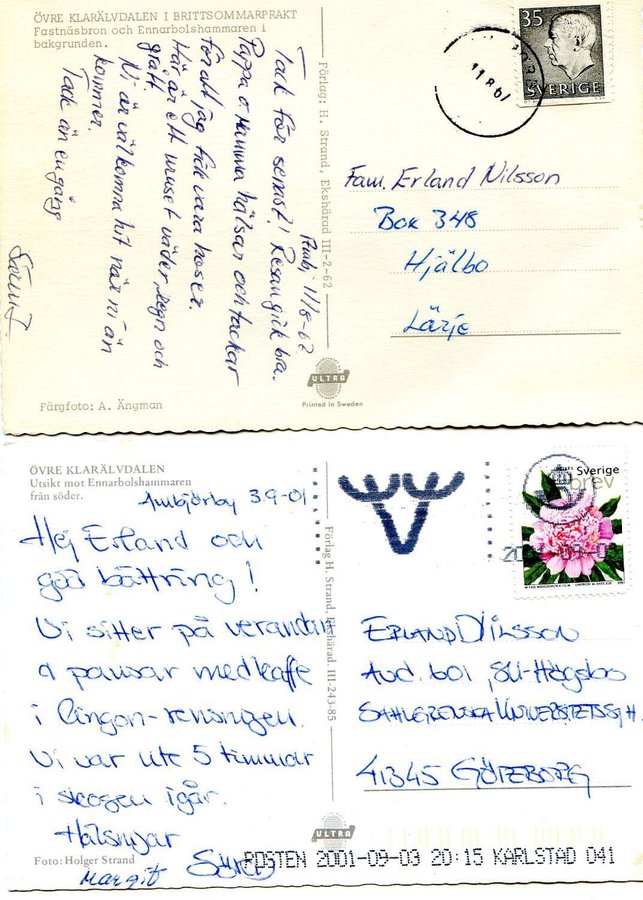 ÖVRE KLARÄLVDALEN I BRITTSOMMARPRAKT
Fastnäsbron och Ennarbolshammaren i
bakgrunden.
11/8-62
Tack för senast! Resan gick bra.
Pappa o. Mamma hälsar och tackar
för att jag fick vara hos er.
Här är ett ruset väder, regn och
grått.
Ni är välkomna hit när ni än
kommer.
Tack än en gång
Färgfoto: A. Ängman
Förlag: H. Strand, Ekshärad III-2-62
ULTRA
Printed in Sweden
35
SVERIGE
Fam. Erland Nilsson
Box 348
Hjälbo
Lärje
ÖVRE KLARÄLVDALEN
Utsikt mot Ennarbolshammaren
från söder.
Ambjörby 3.9-01
Hej Erland och
god bättring!
Vi sitter på verandan
o pausar med kaffe
i lingon-rensningen.
Vi var ute 5 timmar
i skogen igår.
Hälsningar
Margit Sören
Foto: Holger Strand
Förlag H. Strand, Ekshärad III-243-85
ULTRA
Sverige
brev
ERLAND NILSSON
Avd. 601, SU-Högsbo
SAHLGRENSKA UNIVERSTETSSJH.
41345 GÖTEBORG
POSTEN 2001-09-03 20:15 KARLSTAD 041